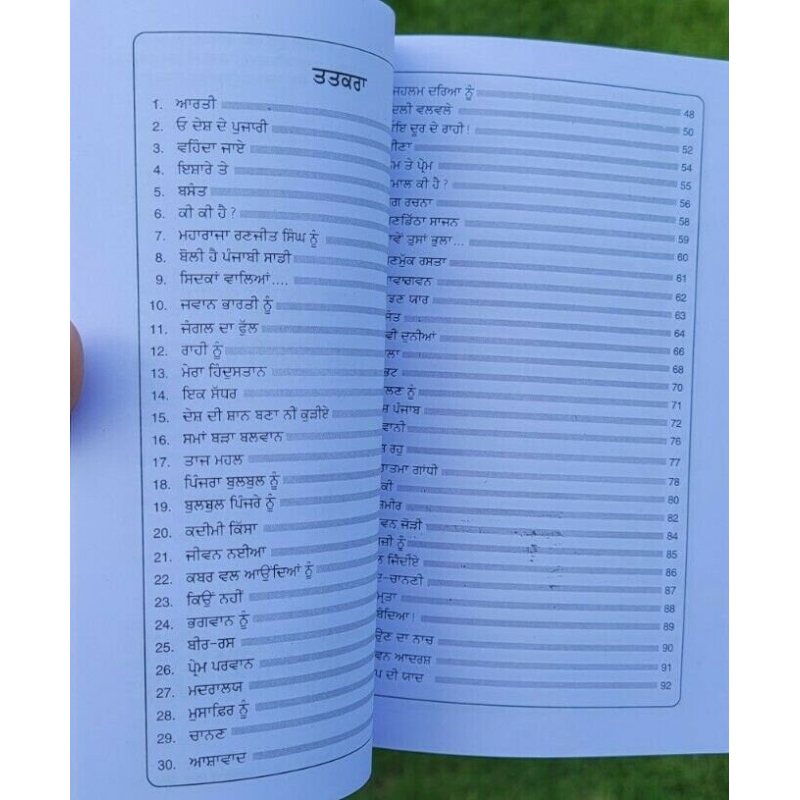 ਤਤਕਰਾ
1. ਆਰਤੀ
2. ਓ ਦੇਸ਼ ਦੇ ਪੁਜਾਰੀ
3. ਵਹਿੰਦਾ ਜਾਏ
4. ਇਸ਼ਾਰੇ ਤੇ
5. ਬਸੰਤ
6. ਕੀ ਕੀ ਹੈ ?
7. ਮਹਾਰਾਜਾ ਰਣਜੀਤ ਸਿੰਘ ਨੂੰ
8. ਬੋਲੀ ਹੈ ਪੰਜਾਬੀ ਸਾਡੀ
9. ਸਿਦਕਾਂ ਵਾਲਿਆਂ....
10. ਜਵਾਨ ਭਾਰਤੀ ਨੂੰ
11. ਜੰਗਲ ਦਾ ਫੁੱਲ
12. ਰਾਹੀ ਨੂੰ
13. ਮੇਰਾ ਹਿੰਦੁਸਤਾਨ
14. ਇਕ ਸੱਧਰ
15. ਦੇਸ਼ ਦੀ ਸ਼ਾਨ ਬਣਾ ਨੀ ਕੁੜੀਏ
16. ਸਮਾਂ ਬੜਾ ਬਲਵਾਨ
17. ਤਾਜ ਮਹਲ
18. ਪਿੰਜਰਾ ਬੁਲਬੁਲ ਨੂੰ
19. ਬੁਲਬੁਲ ਪਿੰਜਰੇ ਨੂੰ
20. ਕਦੀਮੀ ਕਿੱਸਾ
21. ਜੀਵਨ ਨਈਆ
22. ਕਬਰ ਵਲ ਆਉਂਦਿਆਂ ਨੂੰ
23. ਕਿਉਂ ਨਹੀਂ
24. ਭਗਵਾਨ ਨੂੰ
25. ਬੀਰ-ਰਸ
26. ਪ੍ਰੇਮ ਪਰਵਾਨ
27. ਮਦਰਾਲਯ
28. ਮੁਸਾਫ਼ਿਰ ਨੂੰ
29. ਚਾਨਣ
30. ਆਸ਼ਾਵਾਦ
ਜਹਲਮ ਦਰਿਆ ਨੂੰ 48
ਵਲਵਲੇ 50
ਦੂਰ ਦੇ ਰਾਹੀ ! 52
54
ਤੇ ਪ੍ਰੇਮ 55
ਕੀ ਹੈ ? 56
ਰਚਨਾ 58
ਸਾਜਨ 59
ਤੁਸਾਂ ਭੁਲਾ... 60
ਰਸਤਾ 61
62
ਯਾਰ 63
64
ਦੁਨੀਆਂ 66
68
70
ਨੂੰ 71
ਪੰਜਾਬ 72
76
ਰਹੁ 77
ਗਾਂਧੀ 78
80
82
ਜੋੜੀ 84
ਨੂੰ 85
ਜਿੰਦੀਏ 86
ਚਾਨਣੀ 87
88
89
ਦਾ ਨਾਚ 90
ਆਦਰਸ਼ 91
ਦੀ ਯਾਦ 92